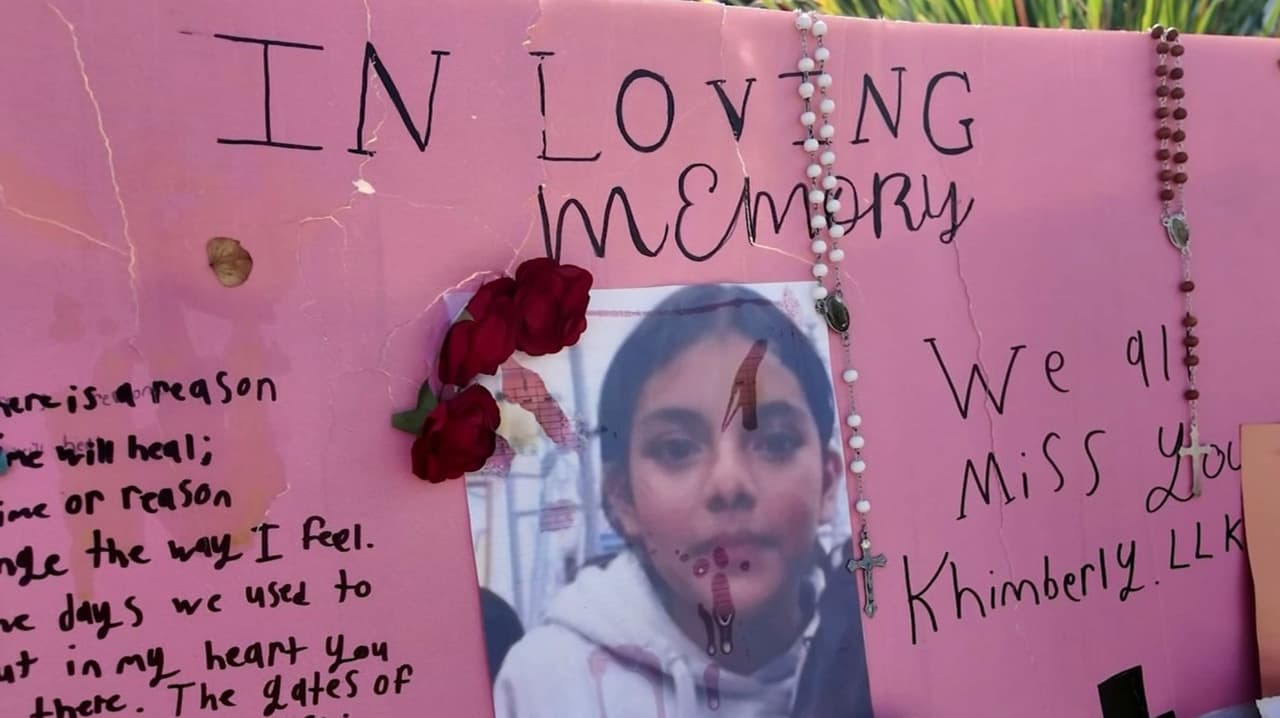 IN LOVING
MEMORY
here is a reason
me will heal;
ime or reason
nge the way I feel.
he days we used to
ut in my heart you
there. The gates of
We all
Miss You
Khimberly. LLK